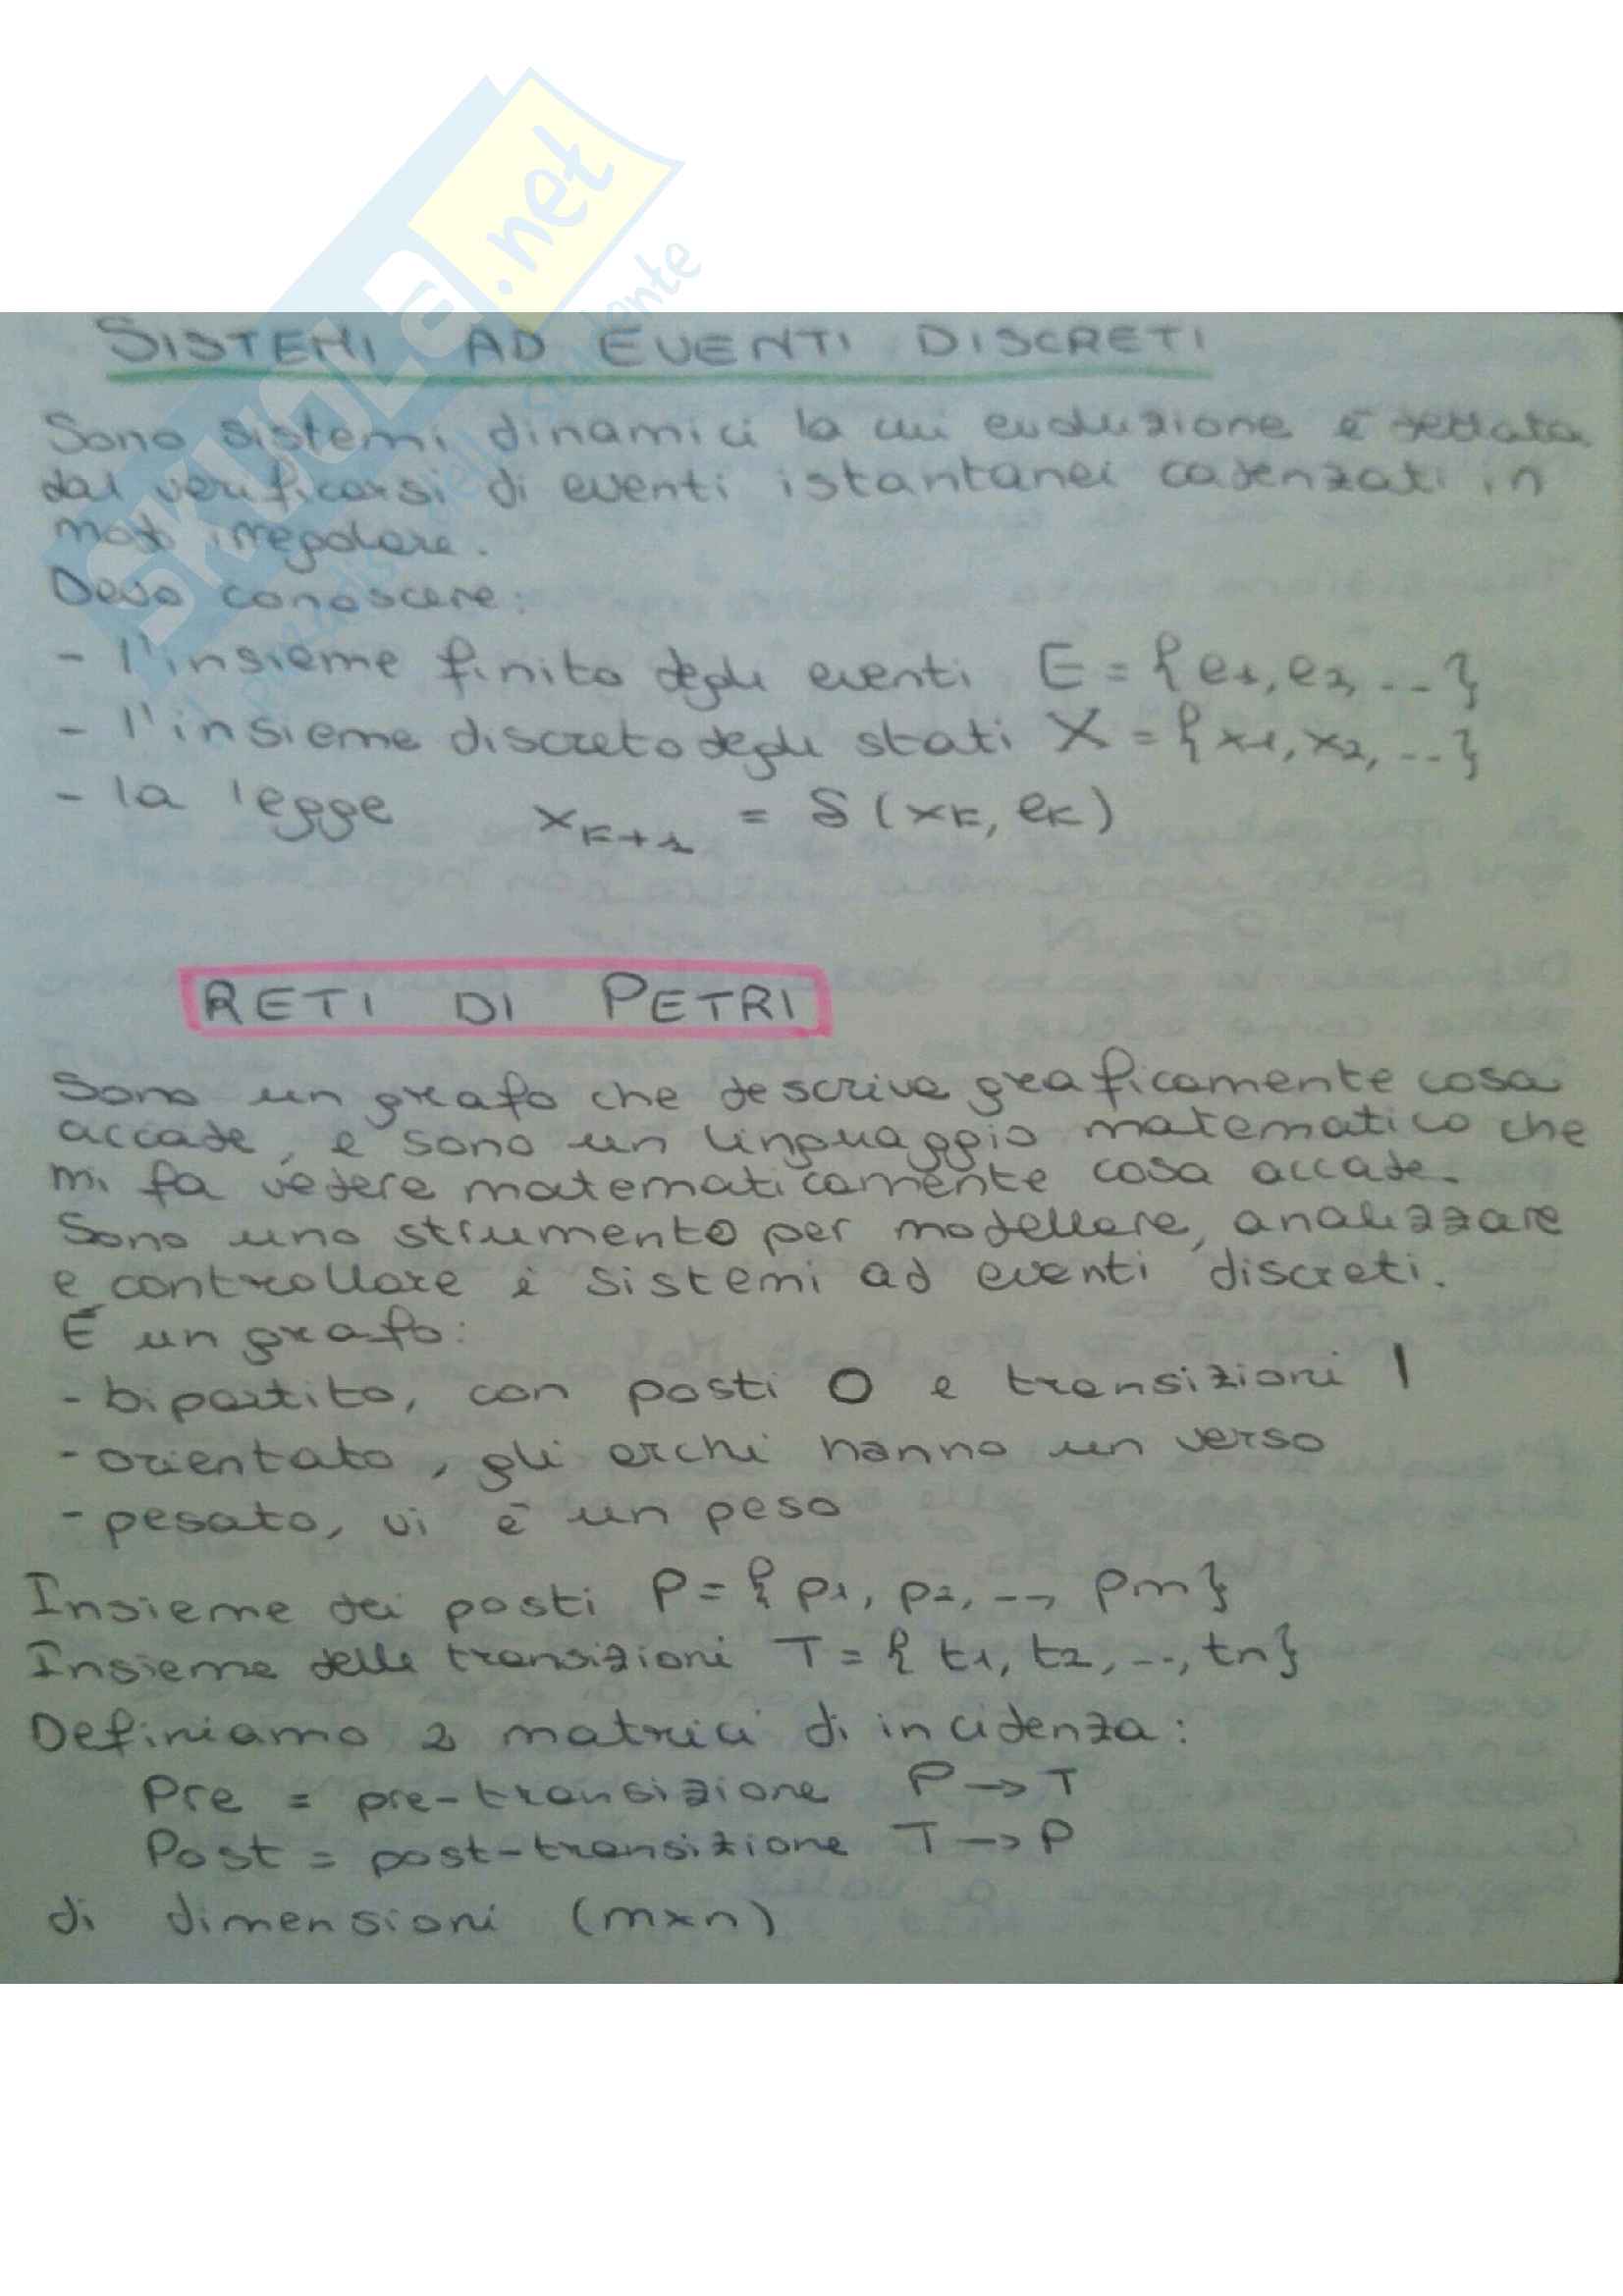 SKUOLA.net
SISTEMI AD EVENTI DISCRETI
Sono sistemi dinamici la cui evoluzione è dettata
dal verificarsi di eventi istantanei cadenzati in
modo irregolare.
Devo conoscere:
- l'insieme finito degli eventi E = {e1, e2, ...}
- l'insieme discreto degli stati X = {x1, x2, ...}
- la legge xK+1 = δ(xK, eK)
RETI DI PETRI
Sono un grafo che descrive graficamente cosa
accade, e sono un linguaggio matematico che
mi fa vedere matematicamente cosa accade.
Sono uno strumento per modellare, analizzare
e controllare i sistemi ad eventi discreti.
È un grafo:
- bipartito, con posti O e transizioni |
- orientato, gli archi hanno un verso
- pesato, vi è un peso
Insieme dei posti P = {p1, p2, ..., pm}
Insieme delle transizioni T = {t1, t2, ..., tn}
Definiamo 2 matrici di incidenza:
Pre = pre-transizione P → T
Post = post-transizione T → P
di dimensioni (m×n)